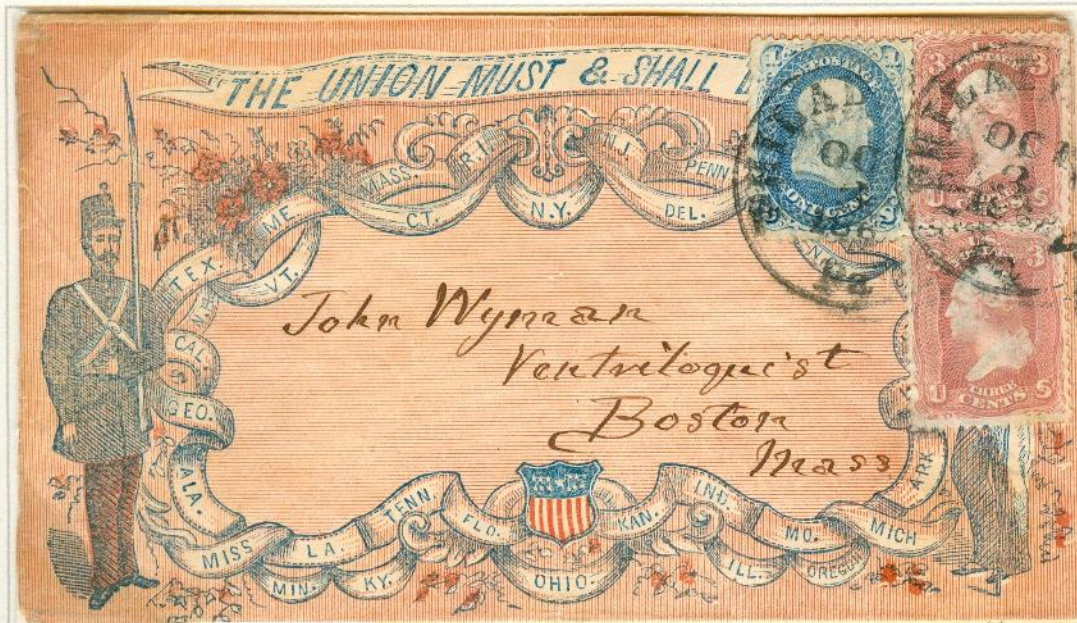 "THE UNION MUST & SHALL
MASS.
R.I.
N.J.
PENN
CT.
N.Y.
DEL.
ME
TEX.
VT.
CAL.
GEO.
ALA.
MISS
LA.
TENN.
FLO.
KAN.
IND.
MO.
MICH
ARK
MIN.
KY.
OHIO.
ILL.
OREGON
John Wyman
Ventriloquist
Boston
Mass
POSTAGE
ONE CENT
3 3
U S
3
U S
THREE
CENTS
PHILAD
OC
PHILA
OC